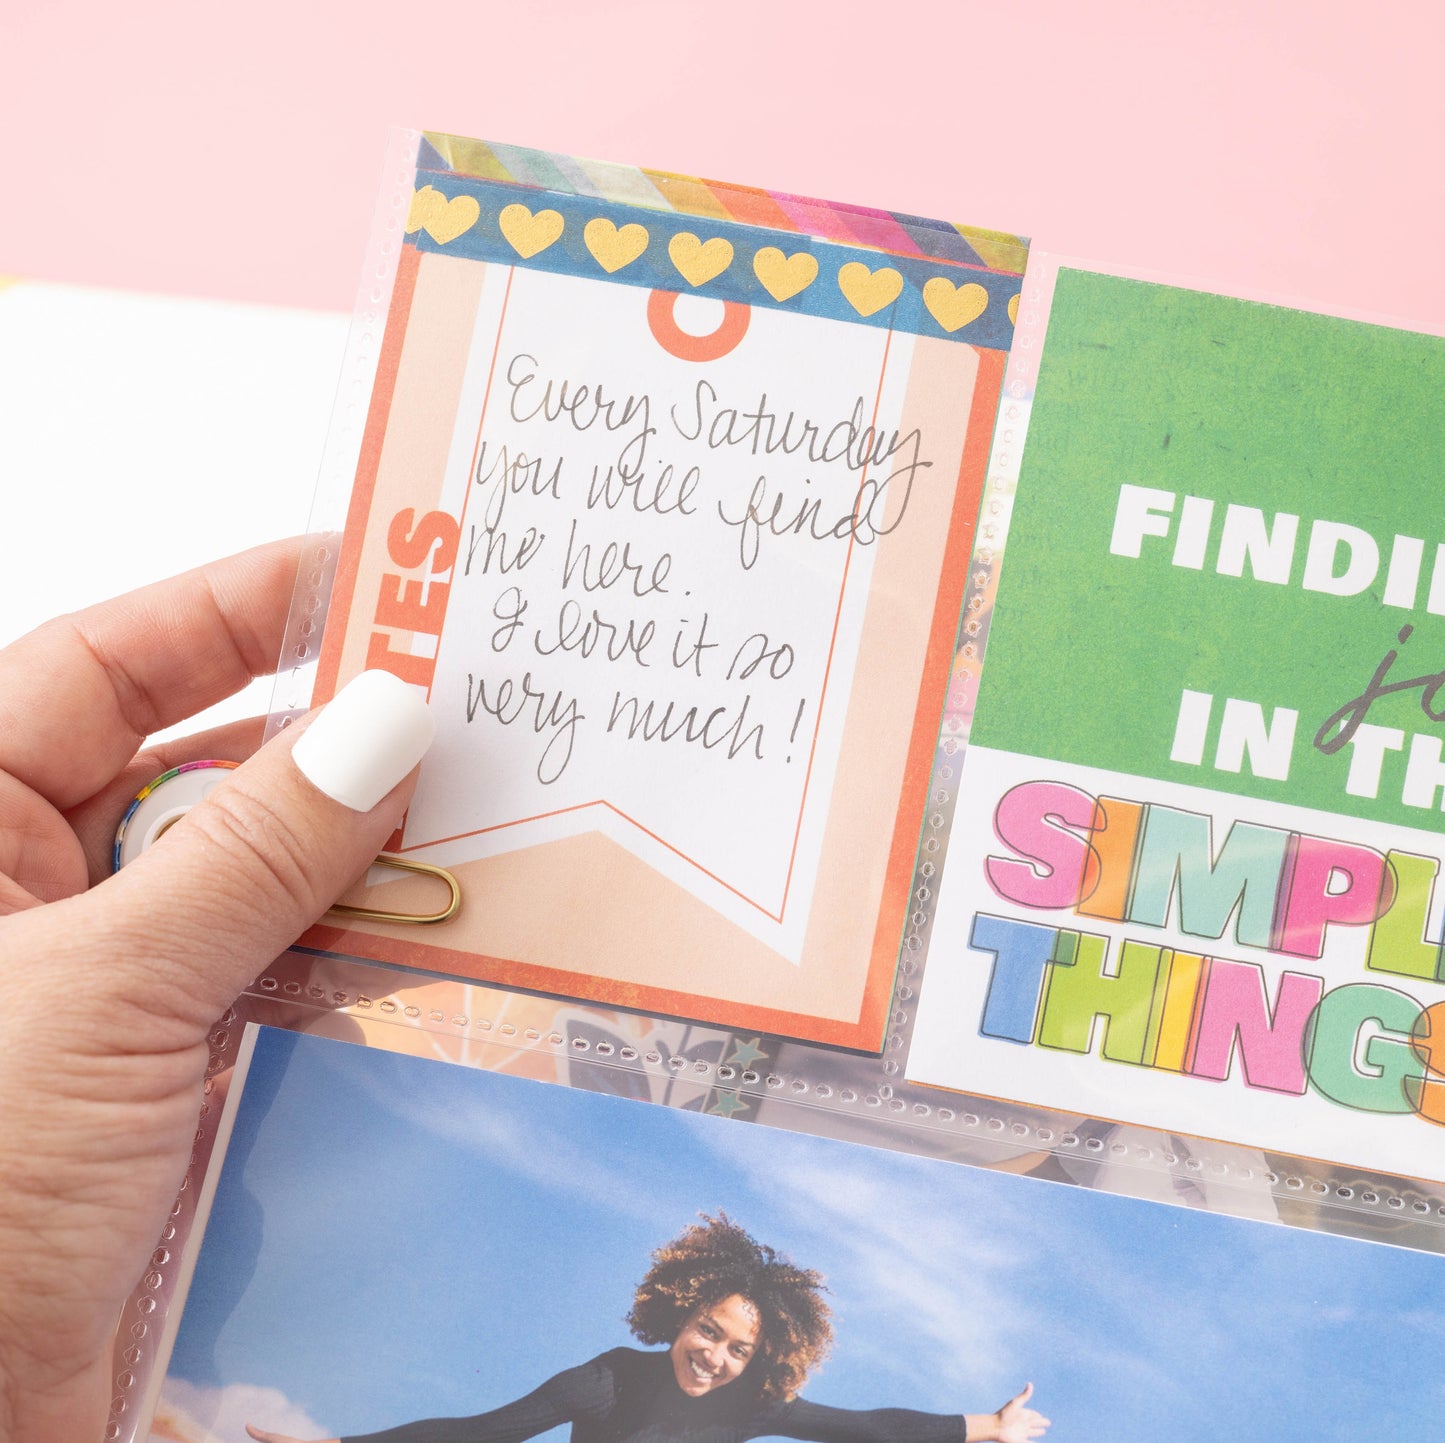 Every Saturday
you will find
me here.
I love it so
very much!
TES
FINDI
jo
IN TH
SIMPL
THINGS